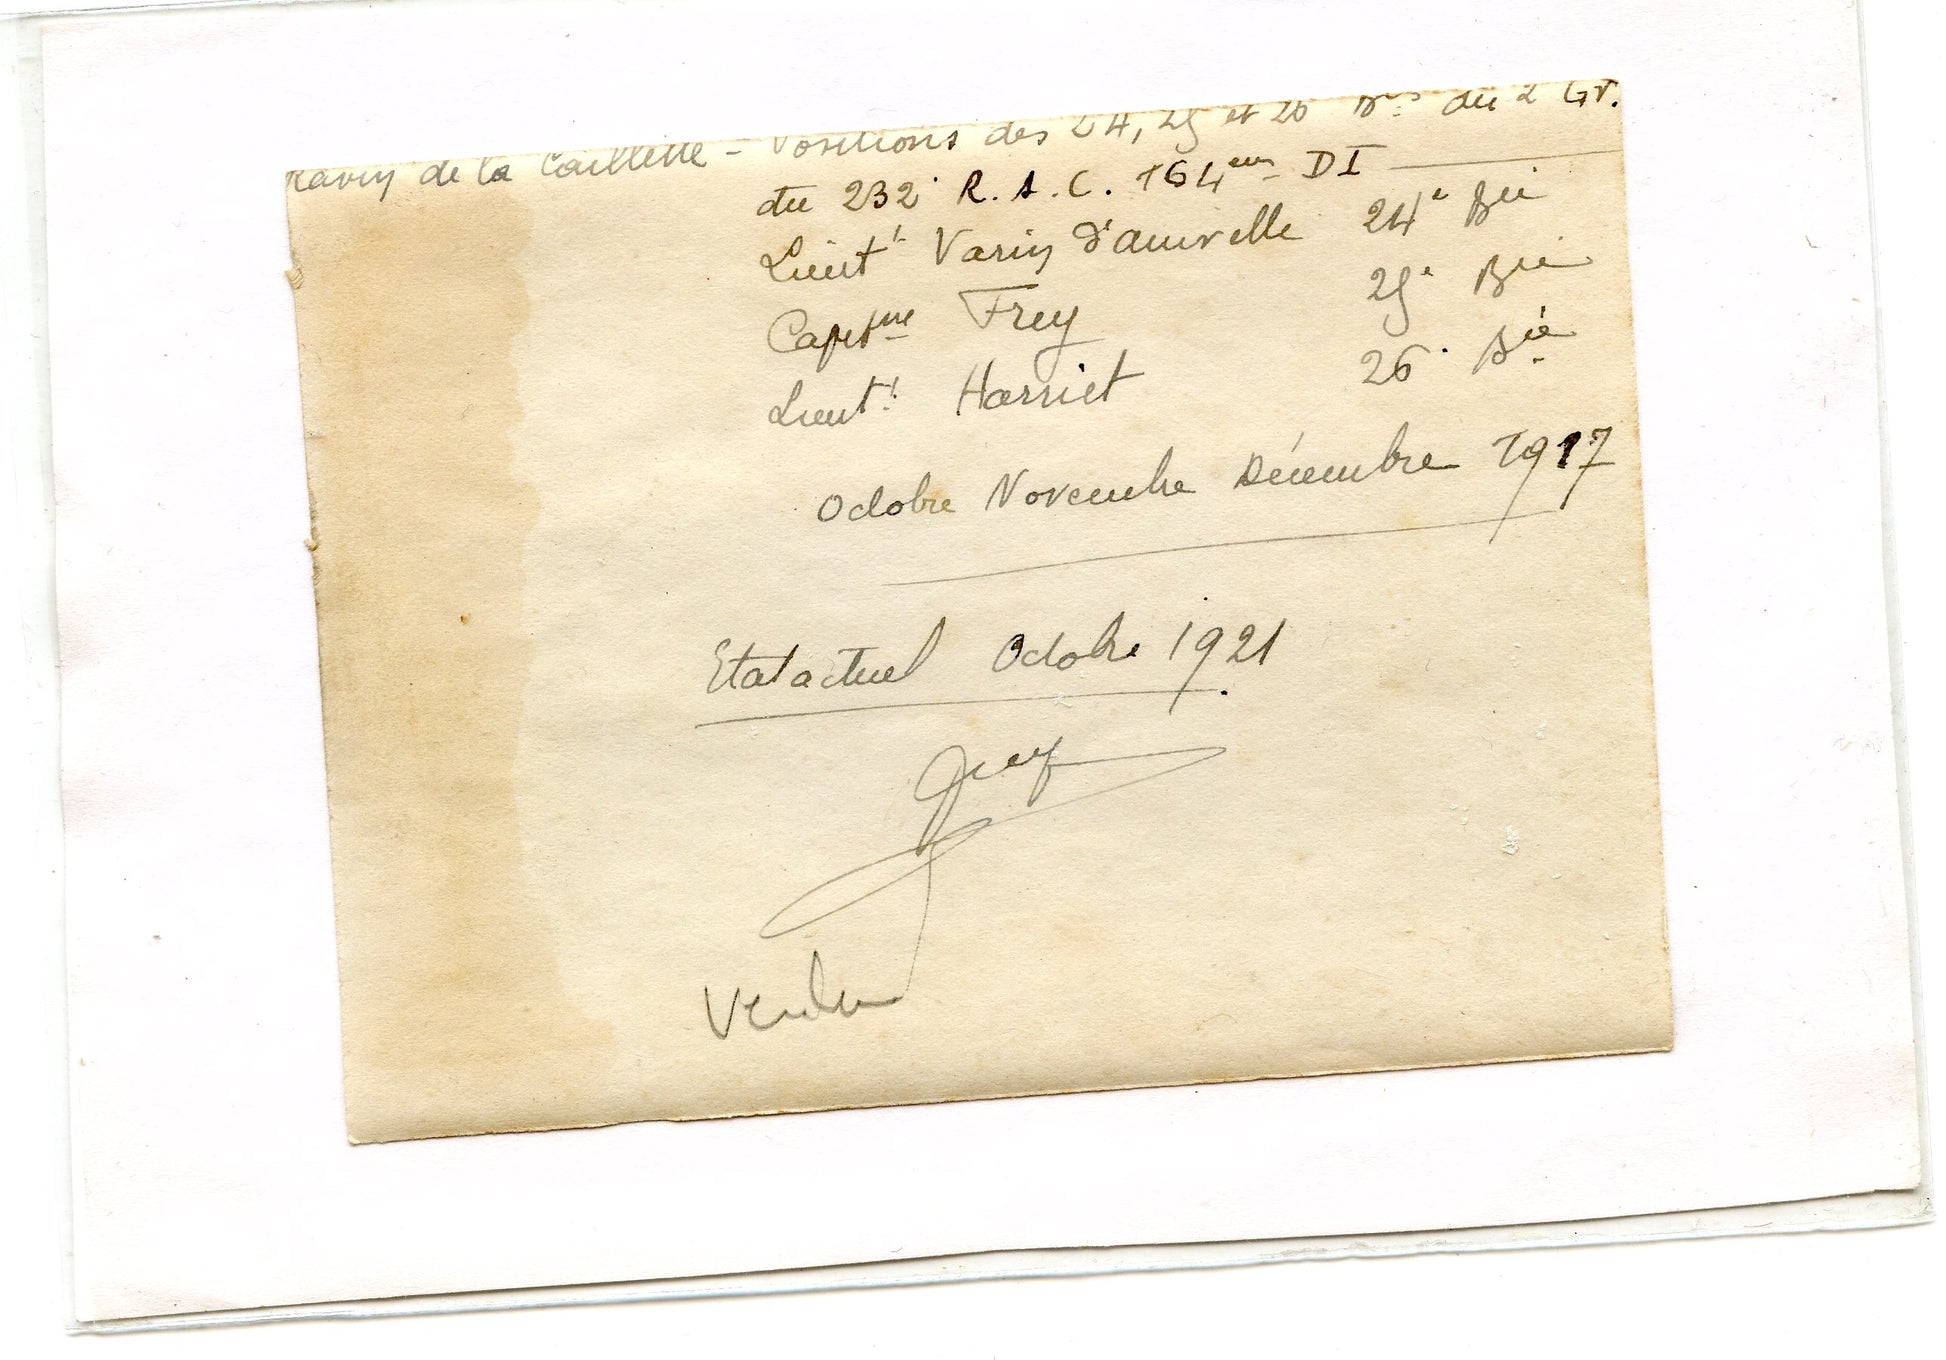 Ravin de la Caillette - Positions des 24, 25 et 26 Bies du 2 Gr.
du 232e R.A.C. 164ème DI
Lieutt Varin d'ainvelle 24e Bie
Capitne Frey 25e Bie
Lieutt Harriet 26e Bie
Octobre Novembre Décembre 1917
Etat actuel Octobre 1921
Verdun